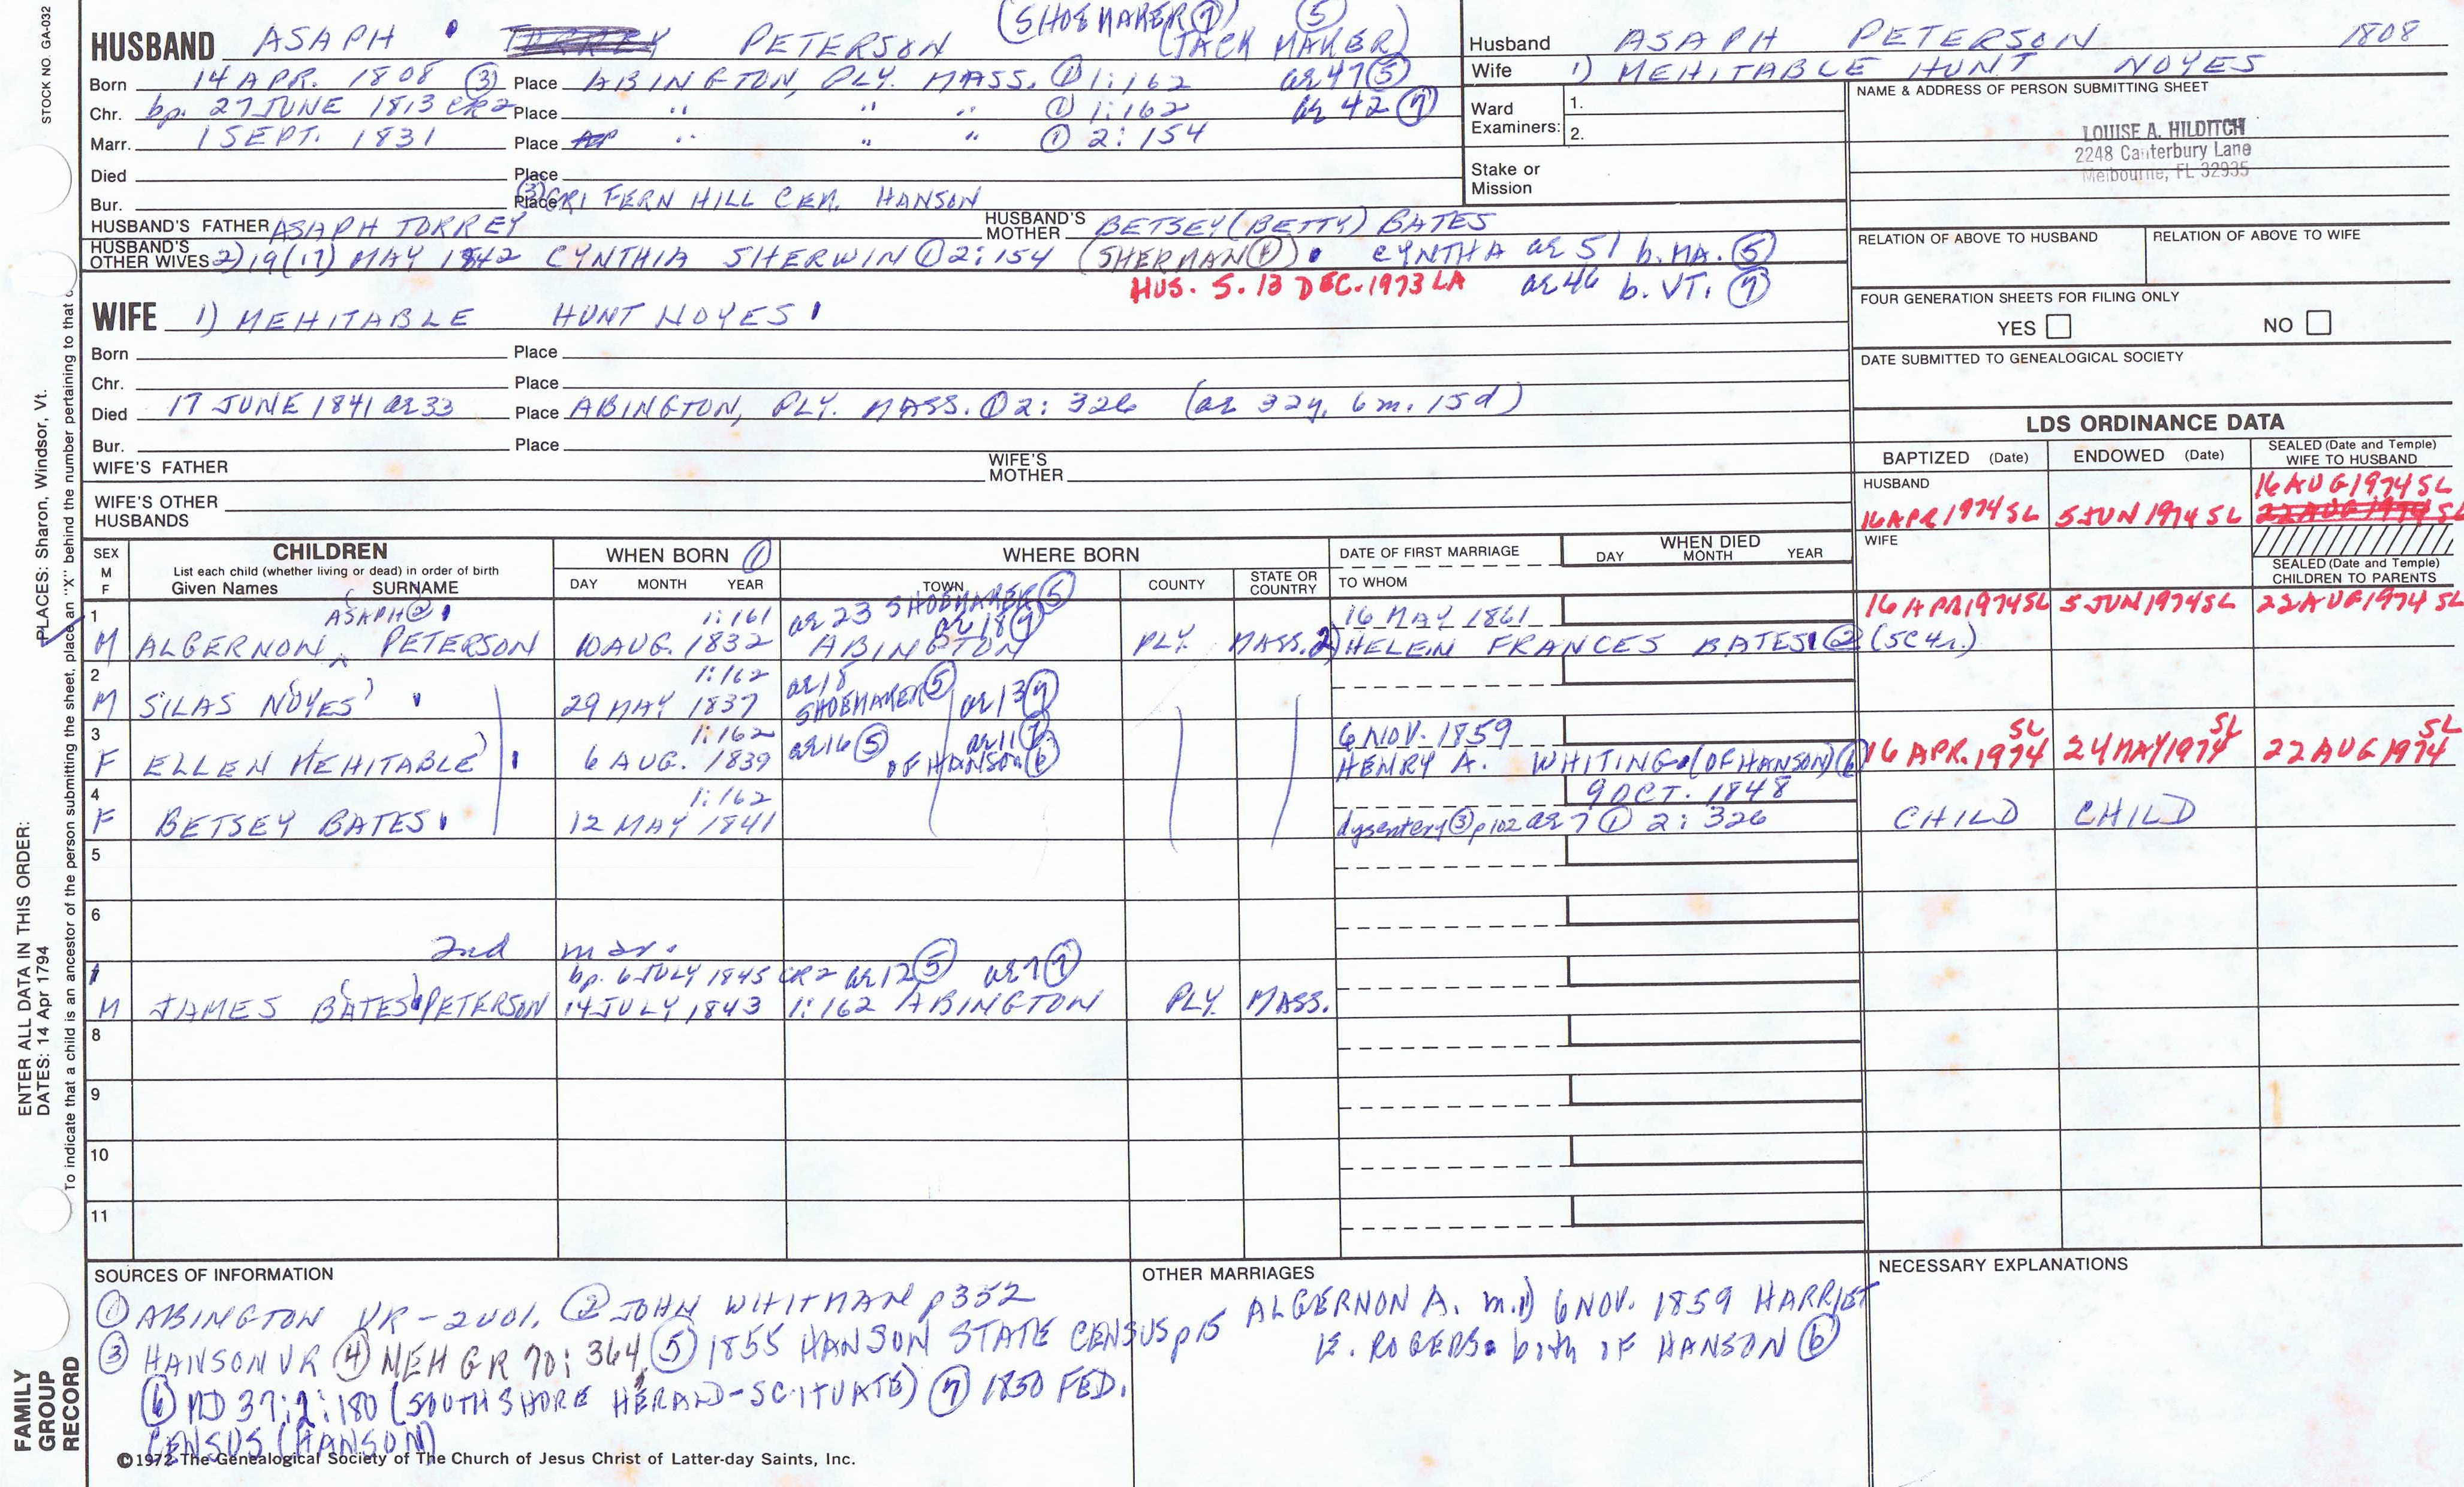 STOCK NO. GA-032
(SHOEMAKER ⑦) ⑤
HUSBAND ASAPH PETERSON (TACK MAKER)
Born 14 APR. 1808 ③ Place ABINGTON, PLY. MASS. ① 1:162 ae 47 ⑤
Chr. bp. 27 JUNE 1813 CR2 Place " " " ① 1:162 ae 42 ⑦
Marr. 1 SEPT. 1831 Place " " " ① 2:154
Died Place
Bur. Place ③ GRI FERN HILL CEM. HANSON
HUSBAND'S FATHER ASAPH TORREY HUSBAND'S MOTHER BETSEY (BETTY) BATES
HUSBAND'S OTHER WIVES 2) 19 (17) MAY 1842 CYNTHIA SHERWIN ① 2:154 (SHERMAN ④) CYNTHA ae 51 b. MA. ⑤
HUS. S. 13 DEC. 1973 LA ae 46 b. VT. ⑦
WIFE 1) MEHITABLE HUNT NOYES
Born Place
Chr. Place
Died 17 JUNE 1841 ae 33 Place ABINGTON, PLY. MASS. ① 2:326 (ae 32y. 6m. 15d)
Bur. Place
WIFE'S FATHER WIFE'S MOTHER
WIFE'S OTHER HUSBANDS
Husband ASAPH PETERSON 1808
Wife 1) MEHITABLE HUNT NOYES
Ward Examiners: 1.
2.
Stake or Mission
NAME & ADDRESS OF PERSON SUBMITTING SHEET
LOUISE A. HILDITCH
2248 Canterbury Lane
Melbourne, FL 32935
RELATION OF ABOVE TO HUSBAND RELATION OF ABOVE TO WIFE
FOUR GENERATION SHEETS FOR FILING ONLY
YES NO
DATE SUBMITTED TO GENEALOGICAL SOCIETY
LDS ORDINANCE DATA
BAPTIZED (Date) ENDOWED (Date) SEALED (Date and Temple) WIFE TO HUSBAND
HUSBAND 16 AUG 1974 SL
16 APR 1974 SL 5 JUN 1974 SL 22 AUG 1974 SL
WIFE
SEALED (Date and Temple) CHILDREN TO PARENTS
SEX M F CHILDREN WHEN BORN ① WHERE BORN DATE OF FIRST MARRIAGE WHEN DIED
List each child (whether living or dead) in order of birth DAY MONTH YEAR
Given Names SURNAME DAY MONTH YEAR TOWN COUNTY STATE OR COUNTRY TO WHOM
1 ASAPH ② 1:161 ae 23 SHOEMAKER ⑤ ae 18 ⑦ 16 MAY 1861 16 APR 1974 SL 5 JUN 1974 SL 22 AUG 1974 SL
M ALGERNON PETERSON 10 AUG. 1832 ABINGTON PLY. MASS. 2) HELEN FRANCES BATES ② (SC 4r.)
2 1:162 ae 18
M SILAS (NOYES) 29 MAY 1837 SHOEMAKER ⑤ ae 13 ⑦
3 1:162 ae 16 ⑤ ae 11 ⑦ 6 NOV. 1859 SL SL SL
F ELLEN (MEHITABLE) 6 AUG. 1839 OF HANSON ⑥ HENRY A. WHITING (OF HANSON) ⑥ 16 APR. 1974 24 MAY 1974 22 AUG 1974
4 1:162 9 OCT. 1848
F BETSEY BATES 12 MAY 1841 dysentery ③ p102 ae 7 ① 2:326 CHILD CHILD
5
6
2nd mar.
bp. 6 JULY 1845 CR2 ae 12 ⑤ ae 7 ⑦
M JAMES (BATES) PETERSON 14 JULY 1843 1:162 ABINGTON PLY. MASS.
8
9
10
11
SOURCES OF INFORMATION
① ABINGTON VR - 2 vol. ② JOHN WHITMAN p 352
③ HANSON VR ④ NEHGR 70:364, ⑤ 1855 HANSON STATE CENSUS p 15
⑥ MD 37:2:180 (SOUTH SHORE HERALD - SCITUATE) ⑦ 1850 FED.
CENSUS (HANSON)
OTHER MARRIAGES
ALGERNON A. m. 1) 6 NOV. 1859 HARRIET
E. ROGERS both OF HANSON ⑥
NECESSARY EXPLANATIONS
©1972 The Genealogical Society of The Church of Jesus Christ of Latter-day Saints, Inc.
ENTER ALL DATA IN THIS ORDER:
DATES: 14 Apr 1794
PLACES: Sharon, Windsor, Vt.
To indicate that a child is an ancestor of the person submitting the sheet, place an "X" behind the number pertaining to that
FAMILY
GROUP
RECORD